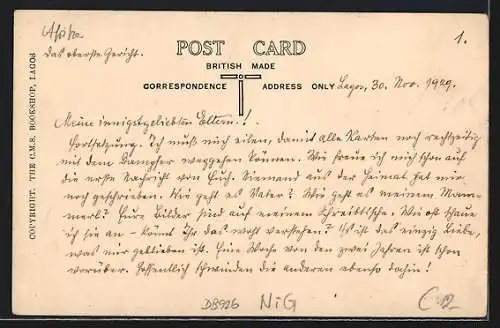 Afrika
das oberste Gericht.
1.
POST CARD
BRITISH MADE
CORRESPONDENCE ADDRESS ONLY
COPYRIGHT. THE C.M.S. BOOKSHOP, LAGOS
Lagos, 30. Nov. 1929.
Meine innigstgeliebten Eltern!
Fortsetzung. Ich muß mich eilen, damit alle Karten noch rechtzeitig
mit dem Dampfer weggehen können. Wie freue ich mich schon auf
die erste Nachricht von Euch. Niemand aus der Heimat hat mir
noch geschrieben. Wie geht es Vater? Wie geht es meinem Mamm-
merl? Eure Bilder sind auf meinem Schreibtische. Wie oft schaue
ich sie an – könnt Ihr das wohl verstehen? Es ist das einzig Liebe,
was mir geblieben ist. Eine Woche von den zwei Jahren ist schon
vorüber. Hoffentlich schwinden die anderen ebenso dahin!
DB926 NiG C-12